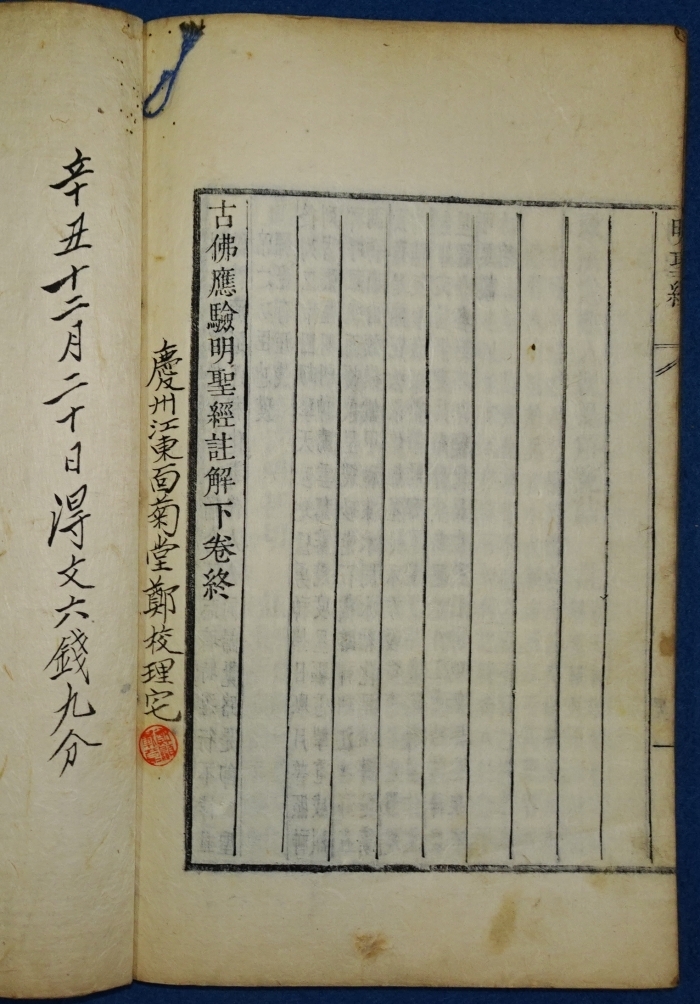 明聖經
古佛應驗明聖經註解下卷終
慶州江東面菊堂鄭校理宅
辛丑十二月二十日得文六錢九分